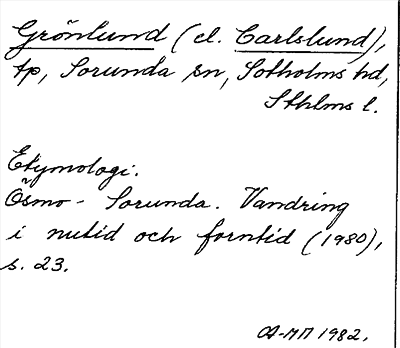 Grönlund (el. Carlslund),
tp, Sorunda sn, Sotholms hd,
Sthlms l.
Etymologi.
Ösmo - Sorunda. Vandring
i nutid och forntid (1980),
s. 23.
A-MM 1982.